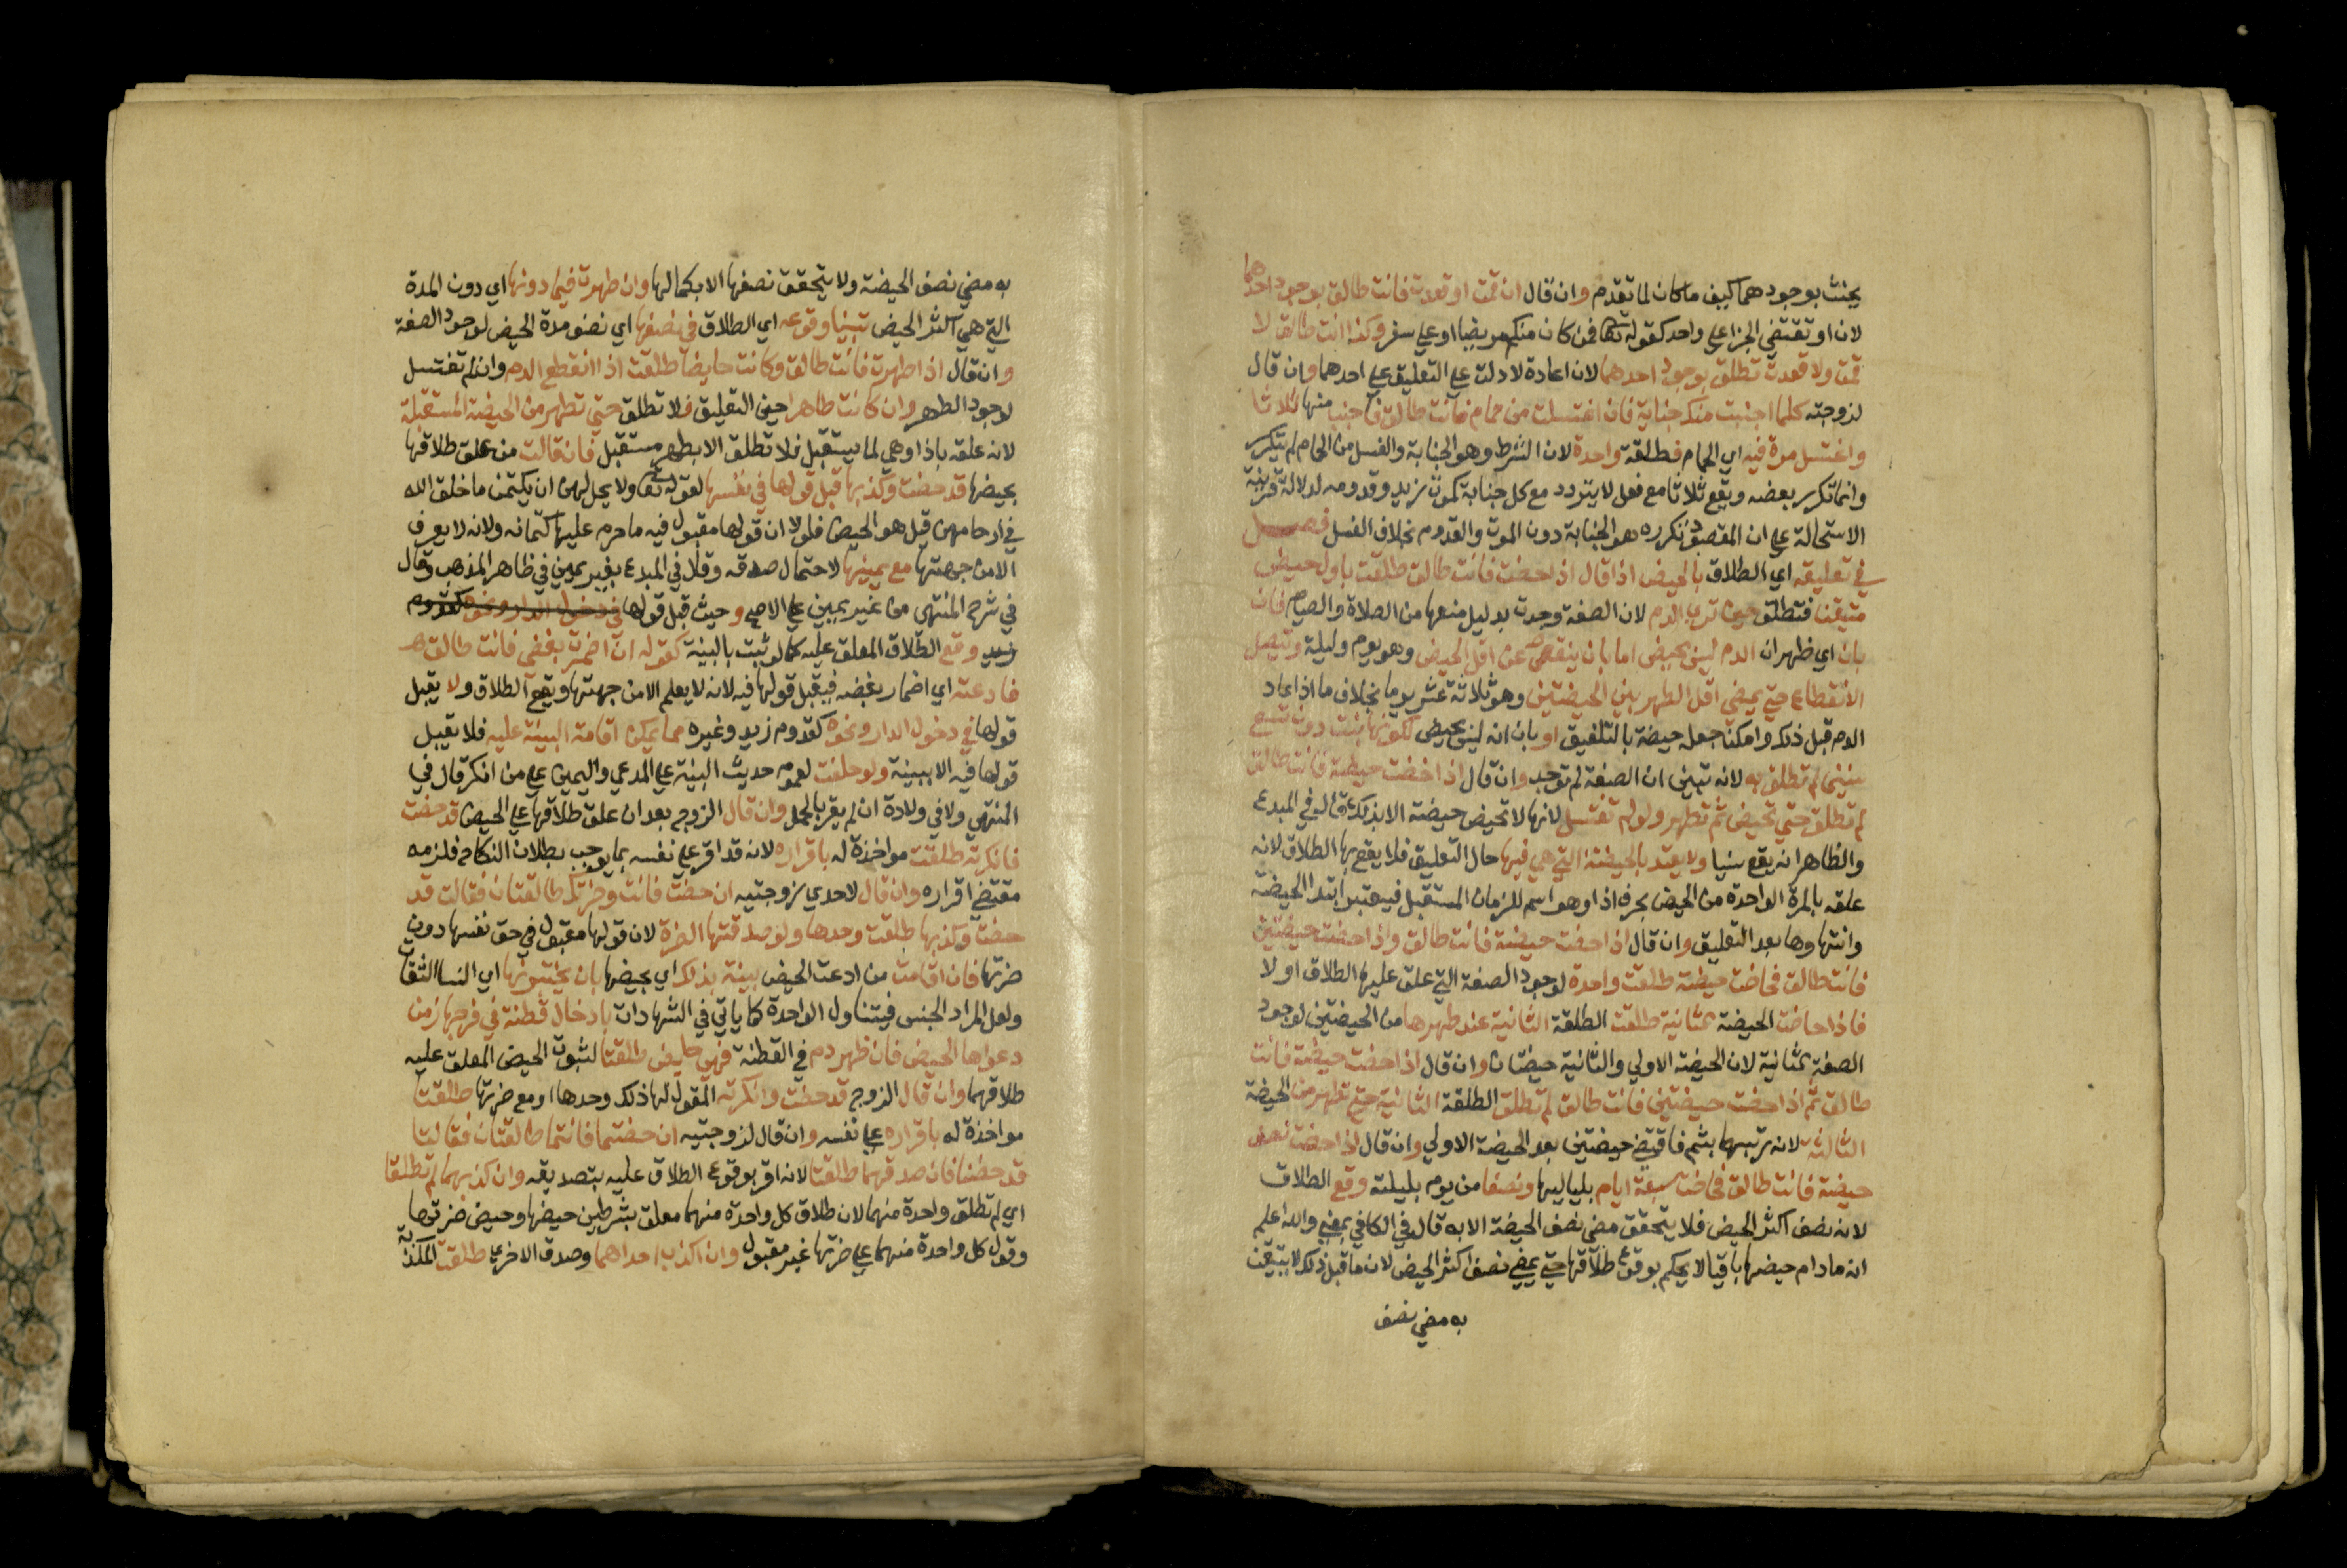 يحنث بوجودهما كيف ما كان لما تقدم وان قال ان قمت او قعدت فانت طالق بوجود احدهما
لان او تقتضي الجزا علي واحد كقوله تعا فمن كان منكم مريضا او علي سفر وكذا انت طالق لا
قمت ولا قعدت تطلق بوجود احدهما لان اعادة لا دلت علي التعليق علي احدهما وان قال
لزوجته كلما اجنبت منك جنابة فان اغتسلت من حمام فانت طالق فاجنب منها ثلاثا
واغتسل مرة فيه اي الحمام فطلقة واحدة لان الشرط وهو الجنابة والغسل من الحمام لم يتكرر
وانما تكرر بعضه ويقع ثلاثا مع فعل لا يتردد مع كل جنابة كموت زيد وقدومه لدلالة قرينة
الاستحالة علي ان المقصود تكرره هو الجنابة دون الموت والقدوم بخلاف الغسل فصل
في تعليقه اي الطلاق بالحيض اذا قال اذا حضت فانت طالق طلقت باول حيض
متيقن فتطلق حين تري الدم لان الصفة وجدت بدليل منعها من الصلاة والصيام فان
بان اي ظهر ان الدم ليس بحيض اما بان ينقص عن اقل الحيض وهو يوم وليلة ويتصل
الانقطاع حتي يمضي اقل الطهر بين الحيضتين وهو ثلاثة عشر يوما بخلاف ما اذا عاد
الدم قبل ذلك وامكن جعله حيضة بالتلفيق او بان انه ليس بحيض لكونها بنت دون تسع
سنين لم تطلق به لانه تبين ان الصفة لم توجد وان قال اذا حضت حيضة فانت طالق
لم تطلق حتي تحيض ثم تطهر ولو لم تغتسل لانها لا تحيض حيضة الا بذلك قال في المبدع
والظاهر انه يقع سنيا ولا يعتد بالحيضة التي هي فيها حال التعليق فلا يقع بها الطلاق لانه
علقه بالمرة الواحدة من الحيض بحرف اذا وهو اسم للزمان المستقبل فيعتبر ابتدا الحيضة
وانتهاوها بعد التعليق وان قال اذا حضت حيضة فانت طالق واذا حضت حيضتين
فانت طالق فحاضت حيضة طلقت واحدة لوجود الصفة التي علق عليها الطلاق اولا
فاذا حاضت الحيضة الثانية طلقت الطلقة الثانية عند طهرها من الحيضتين لوجود
الصفة الثانية لان الحيضة الاولي والثانية حيضتان وان قال اذا حضت حيضة فانت
طالق ثم اذا حضت حيضتين فانت طالق لم تطلق الطلقة الثانية حتي تطهر من الحيضة
الثالثة لانه رتبها بثم فاقتضي حيضتين بعد الحيضة الاولي وان قال اذا حضت نصف
حيضة فانت طالق فحاضت سبعة ايام بلياليها ونصفا من يوم بليلته وقع الطلاق
لانه نصف اكثر الحيض فلا يتحقق مضي نصف الحيضة الا به قال في الكافي يعني والله اعلم
انه ما دام حيضها باقيا لا يحكم بوقوع طلاقها حتي يمضي نصف اكثر الحيض لان ما قبل ذلك لا يتيقن
به مضي نصف
به مضي نصف الحيضة ولا يتحقق نصفها الا بكمالها وان طهرت فيما دونها اي دون المدة
التي هي اكثر الحيض تبينا وقوعه اي الطلاق في نصفها اي نصف مدة الحيض لوجود الصفة
وان قال اذا طهرت فانت طالق وكانت حايضا طلقت اذا انقطع الدم وان لم تغتسل
لوجود الطهر وان كانت طاهرا حين التعليق فلا تطلق حتي تطهر من الحيضة المستقبلة
لانه علقه باذا وهي لما يستقبل فلا تطلق الا بطهر مستقبل فان قالت من علق طلاقها
بحيضها قد حضت وكذبها قبل قولها في نفسها لقوله تعا ولا يحل لهن ان يكتمن ما خلق الله
في ارحامهن قيل هو الحيض فلولا ان قولها مقبول فيه ما حرم عليها كتمانه ولانه لا يعرف
الا من جهتها مع يمينها لاحتمال صدقه وقال في المبدع بغير يمين في ظاهر المذهب وقال
في شرح المنتهي من غير يمين علي الاصح وحيث قبل قولها في دخول الدار ونحوه كقدوم
زيد وقع الطلاق المعلق عليه كما لو ثبت بالبينة كقوله ان اضمرت بغضي فانت طالق
فادعته اي اضمار بغضه فيقبل قولها فيه لانه لا يعلم الا من جهتها ويقع الطلاق ولا يقبل
قولها في دخول الدار ونحوه كقدوم زيد وغيره مما يمكن اقامة البينة عليه فلا يقبل
قولها فيه الا ببينة ولو حلفت لعموم حديث البينة علي المدعي واليمين علي من انكر قال في
المنتهي ولا في ولادة ان لم يقر بالحمل وان قال الزوج بعد ان علق طلاقها علي الحيض قد حضت
فانكرته طلقت مواخذة له باقراره لانه قد اقر علي نفسه بما يوجب بطلان النكاح فلزمه
مقتضي اقراره وان قال لاحدي زوجتيه ان حضت فانت وضرتك طالقتان فقالت قد
حضت وكذبها طلقت وحدها ولو صدقتها الضرة لان قولها مقبول في حق نفسها دون
ضرتها فان اقامت من ادعت الحيض بينة بذلك اي بحيضها بان يختبرنها اي النسا الثقات
ولعل المراد الجنس فيتناول الواحدة كما ياتي في الشهادات بادخال قطنة في فرجها زمن
دعواها الحيض فان ظهر دم في القطنة فهي حايض طلقتا لثبوت الحيض المعلق عليه
طلاقهما وان قال الزوج قد حضت وانكرته المقول لها ذلك وحدها او مع ضرتها طلقتا
مواخذة له باقراره علي نفسه وان قال لزوجتيه ان حضتما فانتما طالقتان فقالتا
قد حضنا فان صدقهما طلقتا لانه اقر بوقوع الطلاق عليه بتصديقه وان كذبهما لم تطلقا
اي لم تطلق واحدة منهما لان طلاق كل واحدة منهما معلق بشرطين حيضها وحيض ضرتها
وقول كل واحدة منهما علي ضرتها غير مقبول وان اكذب احداهما وصدق الاخري طلقت المكذبة